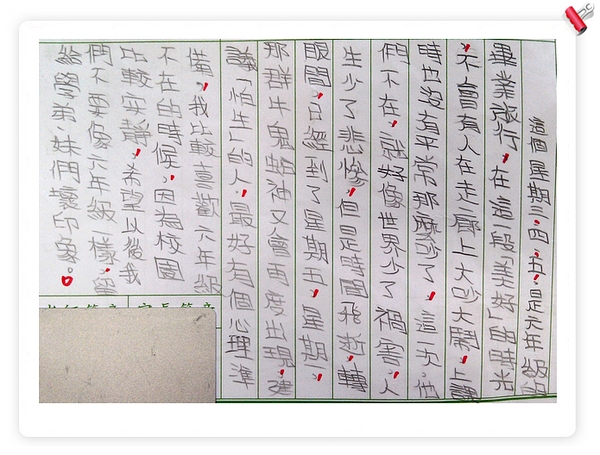 這個星期三、四、五,是六年級的
畢業旅行,在這一段「美好」的時光
,不會有人在走廊上大吵大鬧,上課
時也沒有平常那麼吵了,這一次,他
們不在,就好像世界少了禍害,人
生少了悲慘,但是時間飛逝,轉
眼間,已經到了星期五,星期一,
那群牛鬼蛇神又會再度出現,建
議「怕生」的人,最好有個心理準
備,我比較喜歡六年級
不在的時候,因為校園
比較安靜,希望以後我
們不要像六年級一樣,留
給學弟、妹們壞印象。